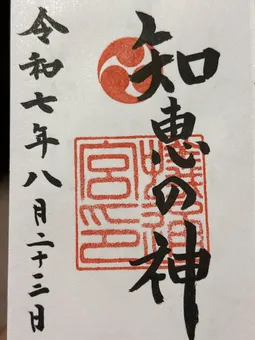 知恵の神
宮印
令和七年八月二十三日